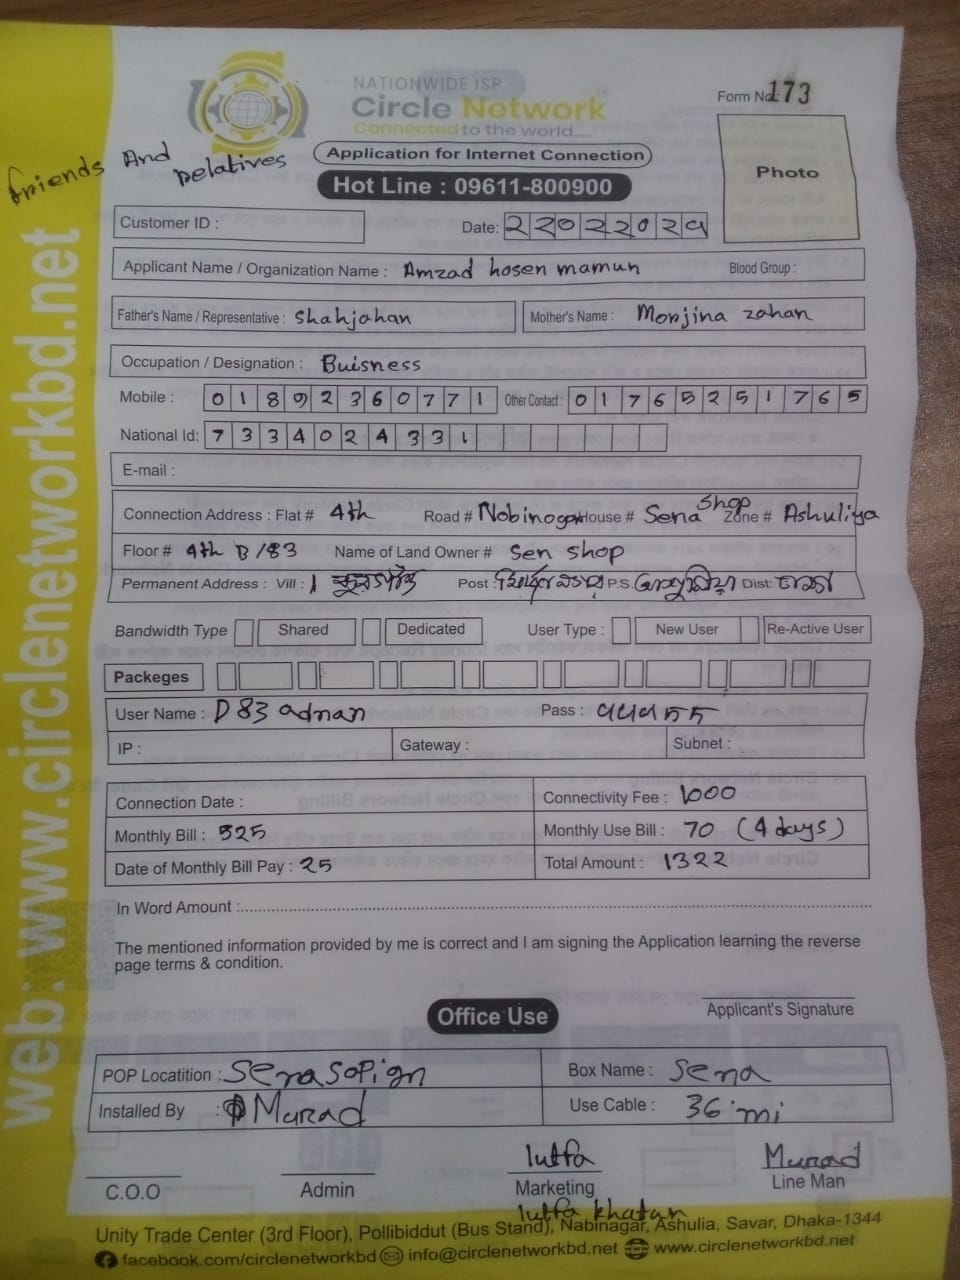 NATIONWIDE ISP
Circle Network
Connected to the world....
Form No. 173
Friends And Relatives
Application for Internet Connection
Hot Line : 09611-800900
Photo
Customer ID :
Date: 2 2 0 2 2 0 2
Applicant Name / Organization Name : Amzad hosen mamun Blood Group :
Father's Name / Representative : Shahjahan Mother's Name : Monjina zahan
Occupation / Designation : Buisness
Mobile : 0 1 8 9 2 3 6 0 7 7 1 Other Contact : 0 1 7 6 5 2 5 1 7 6 5
National Id: 7 3 3 4 0 2 4 3 3 1
E-mail :
Connection Address : Flat # 4th Road # Nobinogor House # Sena Shop Zone # Ashuliya
Floor # 4th B/83 Name of Land Owner # Sen shop
Permanent Address : Vill : Post : P.S. Dist: ঢাকা
Bandwidth Type Shared Dedicated User Type : New User Re-Active User
Packeges
User Name : D83 adnan Pass :
IP : Gateway : Subnet :
Connection Date : Connectivity Fee : 1000
Monthly Bill : 525 Monthly Use Bill : 70 (4 days)
Date of Monthly Bill Pay : 25 Total Amount : 1322
In Word Amount :
The mentioned information provided by me is correct and I am signing the Application learning the reverse
page terms & condition.
Applicant's Signature
Office Use
POP Locatition : Senasopign Box Name : Sena
Installed By : Murad Use Cable : 36 mi
C.O.O Admin lutfa Marketing Murad Line Man
lutfa khatun
Unity Trade Center (3rd Floor), Pollibiddut (Bus Stand), Nabinagar, Ashulia, Savar, Dhaka-1344
facebook.com/circlenetworkbd info@circlenetworkbd.net www.circlenetworkbd.net
web: www.circlenetworkbd.net